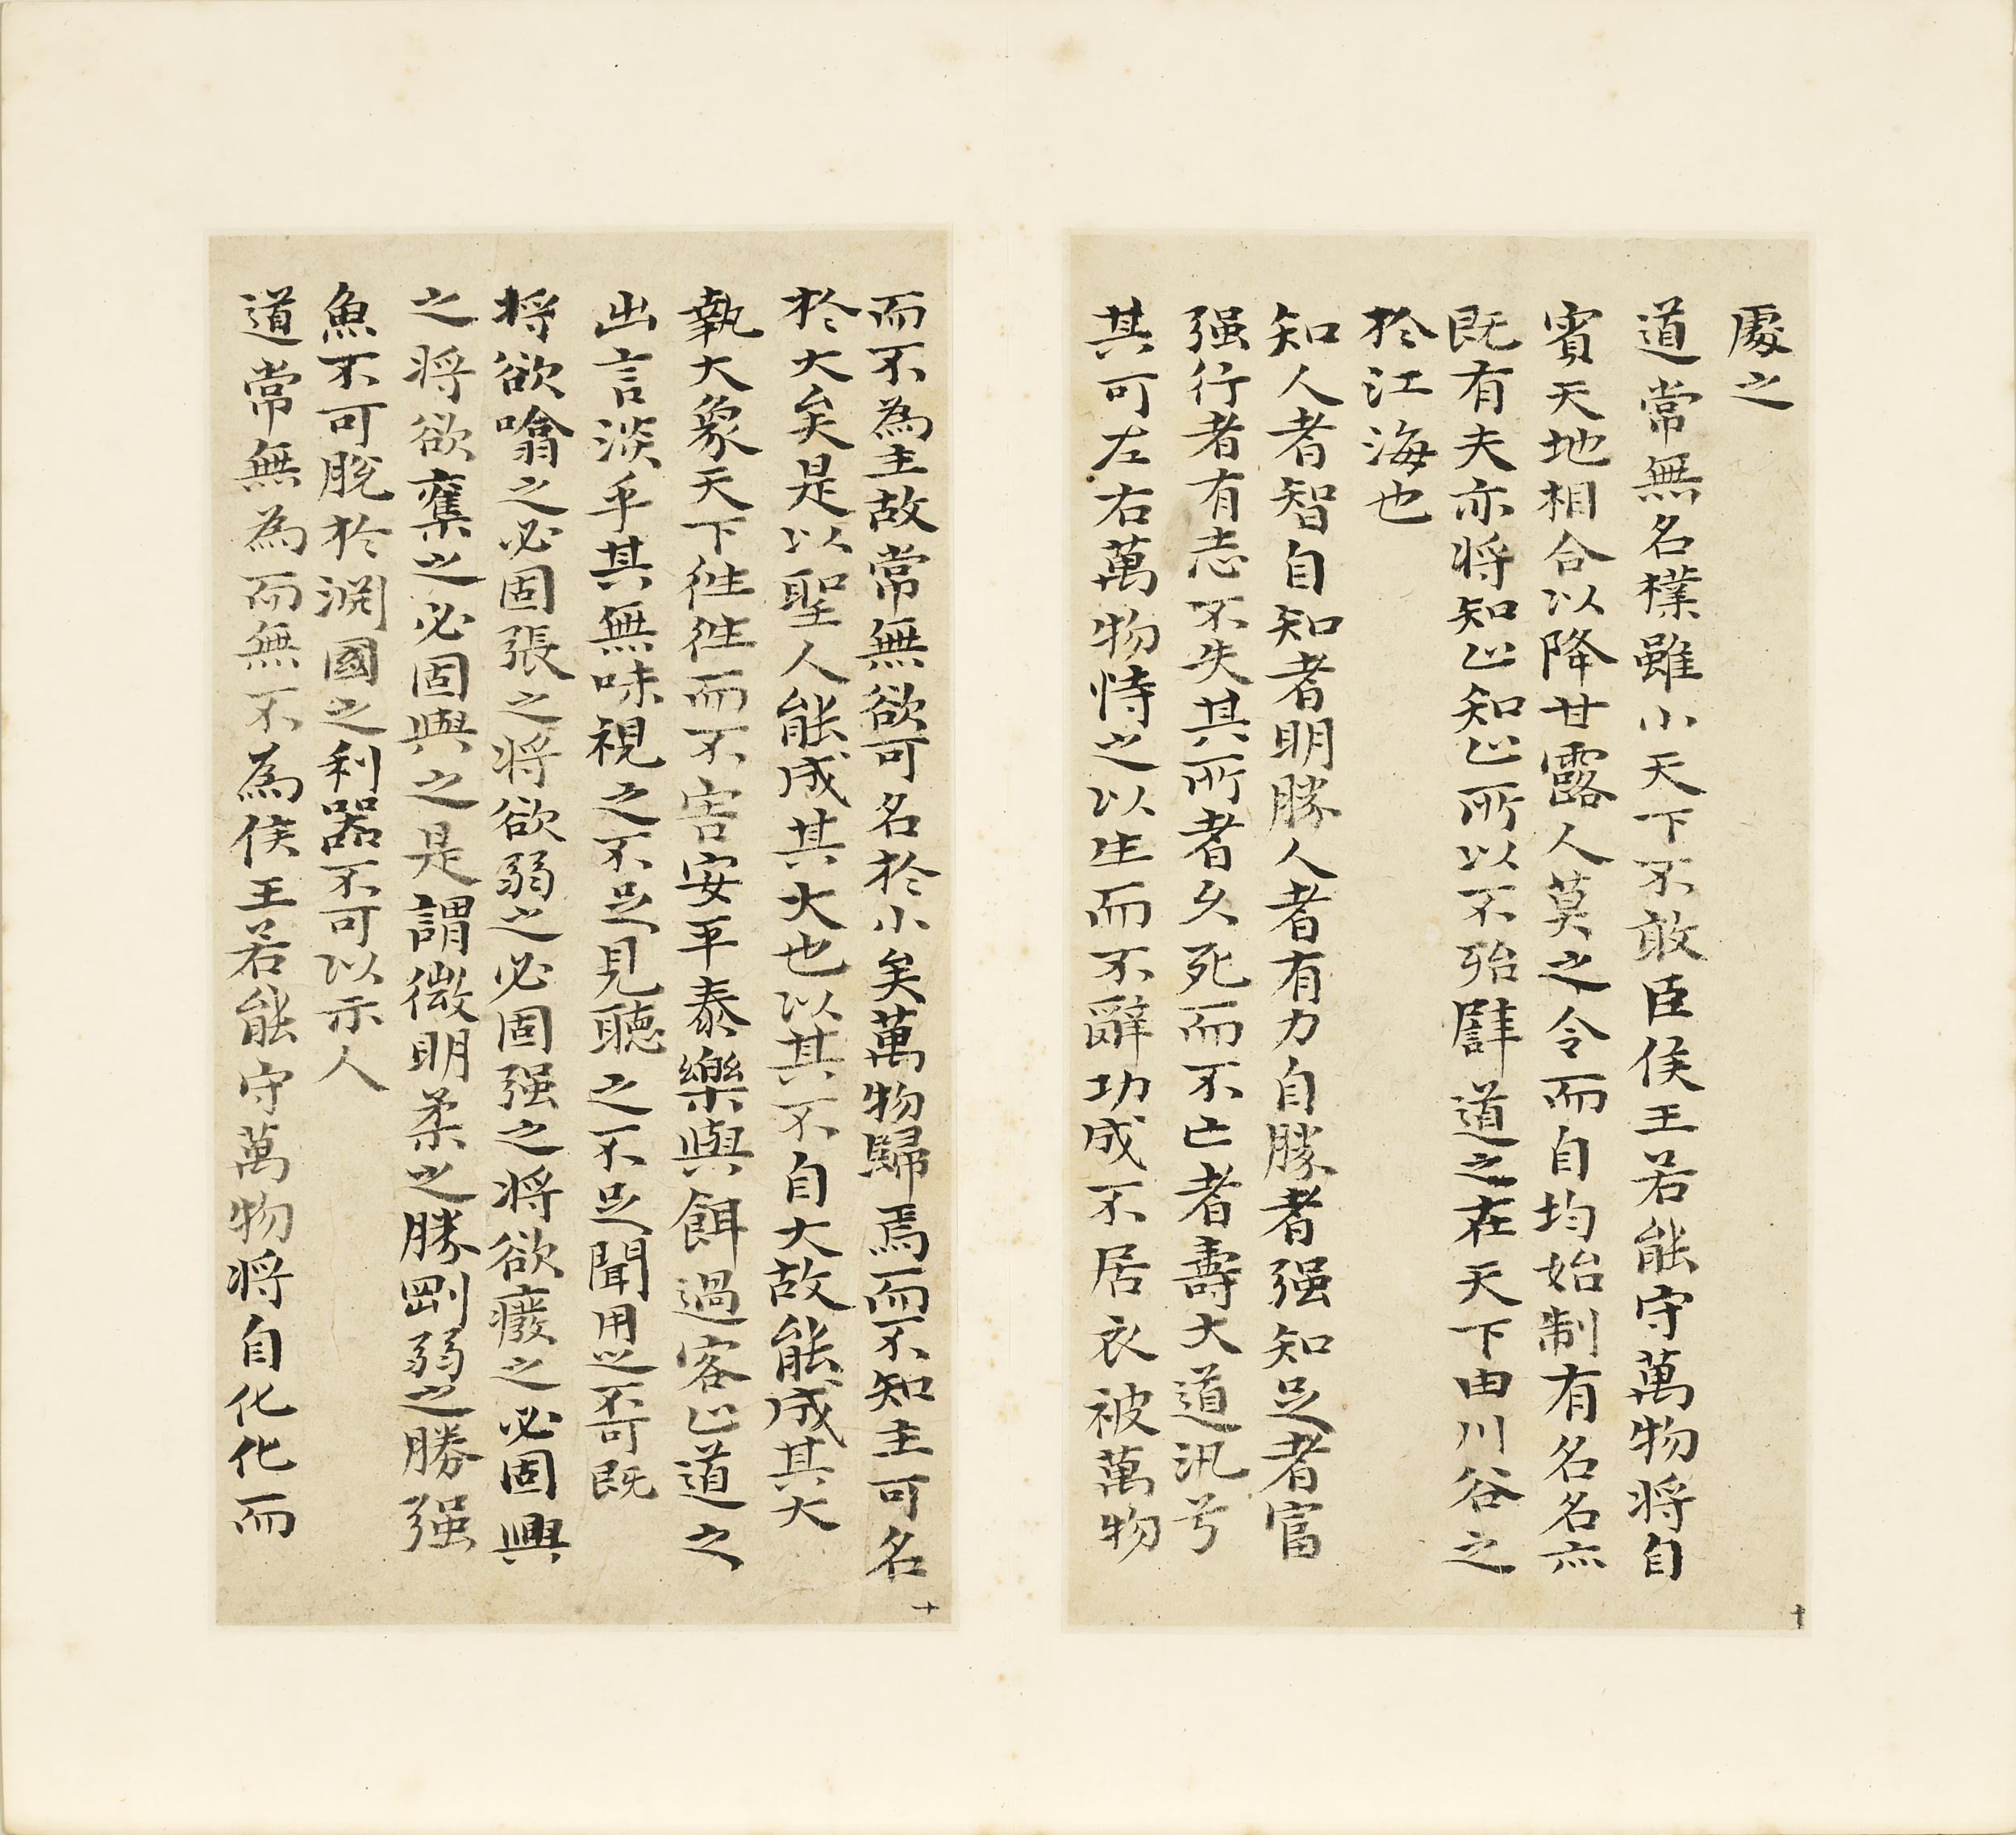 處之
道常無名樸雖小天下不敢臣侯王若能守萬物將自
賓天地相合以降甘露人莫之令而自均始制有名名亦
既有夫亦將知止知止所以不殆譬道之在天下由川谷之
於江海也
知人者智自知者明勝人者有力自勝者强知足者富
强行者有志不失其所者久死而不亡者壽大道汎兮
其可左右萬物恃之以生而不辭功成不居衣被萬物
十
而不為主故常無欲可名於小矣萬物歸焉而不知主可名
於大矣是以聖人能成其大也以其不自大故能成其大
執大象天下往往而不害安平泰樂與餌過客止道之
出言淡乎其無味視之不足見聽之不足聞用之不可既
將欲噏之必固張之將欲弱之必固强之將欲癈之必固興
之將欲奪之必固與之是謂微明柔之勝剛弱之勝强
魚不可脫於淵國之利器不可以示人
道常無為而無不為侯王若能守萬物將自化化而
十